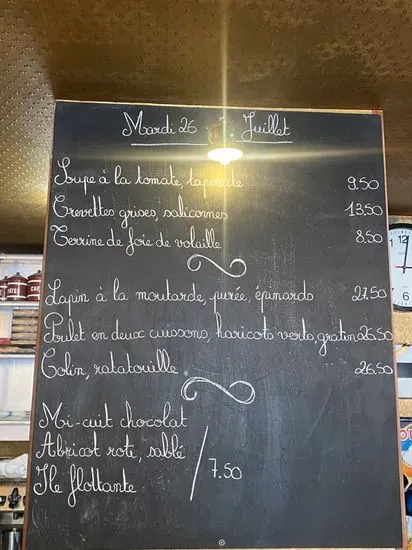 Mardi 26 Juillet
Soupe à la tomate, tapenade 9.50
Crevettes grises, salicornes 13.50
Terrine de foie de volaille 8.50
Lapin à la moutarde, purée, épinards 27.50
Poulet en deux cuissons, haricots verts, gratin 26.50
Colin, ratatouille 26.50
Mi-cuit chocolat
Abricot roti, sablé
7.50
Ile flottante
12